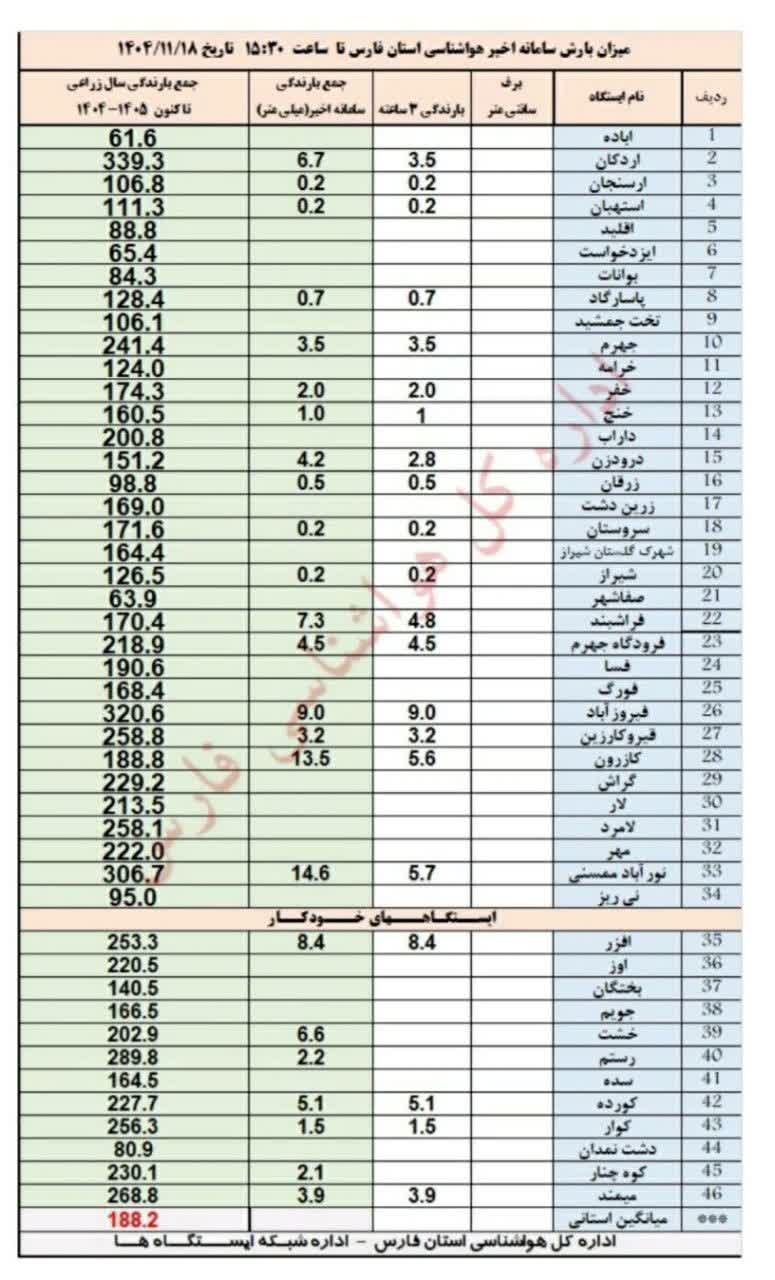 میزان بارش سامانه اخیر هواشناسی استان فارس تا ساعت ۱۵:۳۰ تاریخ ۱۴۰۴/۱۱/۱۸
ردیف نام ایستگاه برف سانتی متر بارندگی ۳ ساعته جمع بارندگی سامانه اخیر(میلی متر) جمع بارندگی سال زراعی تاکنون ۱۴۰۵-۱۴۰۴
1 اباده 61.6
2 اردکان 3.5 6.7 339.3
3 ارسنجان 0.2 0.2 106.8
4 استهبان 0.2 0.2 111.3
5 اقلید 88.8
6 ایزدخواست 65.4
7 بوانات 84.3
8 پاسارگاد 0.7 0.7 128.4
9 تخت جمشید 106.1
10 جهرم 3.5 3.5 241.4
11 خرامه 124.0
12 خفر 2.0 2.0 174.3
13 خنج 1 1.0 160.5
14 داراب 200.8
15 درودزن 2.8 4.2 151.2
16 زرقان 0.5 0.5 98.8
17 زرین دشت 169.0
18 سروستان 0.2 0.2 171.6
19 شهرک گلستان شیراز 164.4
20 شیراز 0.2 0.2 126.5
21 صفاشهر 63.9
22 فراشبند 4.8 7.3 170.4
23 فرودگاه جهرم 4.5 4.5 218.9
24 فسا 190.6
25 فورگ 168.4
26 فیروزآباد 9.0 9.0 320.6
27 قیروکارزین 3.2 3.2 258.8
28 کازرون 5.6 13.5 188.8
29 گراش 229.2
30 لار 213.5
31 لامرد 258.1
32 مهر 222.0
33 نورآباد ممسنی 5.7 14.6 306.7
34 نی ریز 95.0
ایستگاههای خودکار
35 افزر 8.4 8.4 253.3
36 اوز 220.5
37 بختگان 140.5
38 جویم 166.5
39 خشت 6.6 202.9
40 رستم 2.2 289.8
41 سده 164.5
42 کورده 5.1 5.1 227.7
43 کوار 1.5 1.5 256.3
44 دشت نمدان 80.9
45 کوه چنار 2.1 230.1
46 میمند 3.9 3.9 268.8
*** میانگین استانی 188.2
اداره کل هواشناسی استان فارس - اداره شبکه ایستگاه ها
اداره کل هواشناسی فارس